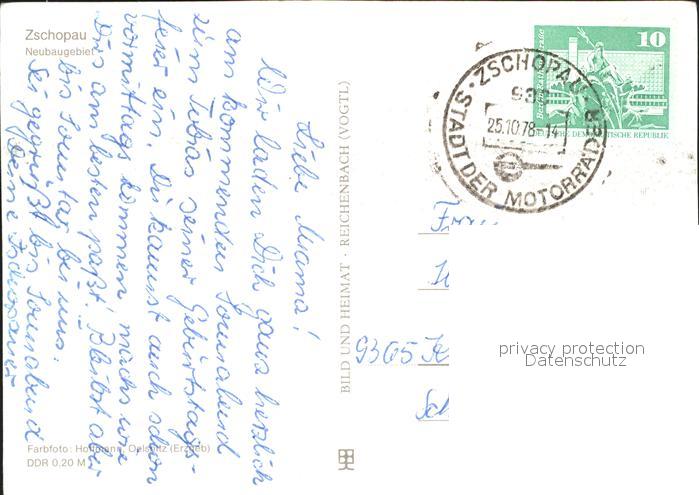 Zschopau
Neubaugebiet
Liebe Mama!
Wir laden Dich ganz herzlich
am kommenden Sonnabend
zum Tobias seiner Geburtstags-
feier ein. Du kannst auch schon
vormittags kommen, machs wie
Dirs am besten paßt! Bleibst aber
bis Sonntag bei uns.
Sei gegrüßt bis Sonnabend
Deine
Farbfoto: Hoffmann, Oelsnitz (Erzgeb)
DDR 0,20 M
BILD UND HEIMAT · REICHENBACH (VOGTL)
10
Berlin, Rathausstraße
DEUTSCHE DEMOKRATISCHE REPUBLIK
· ZSCHOPAU ·
25.10.78-14
STADT DER MOTORRÄDER
9365
privacy protection
Datenschutz